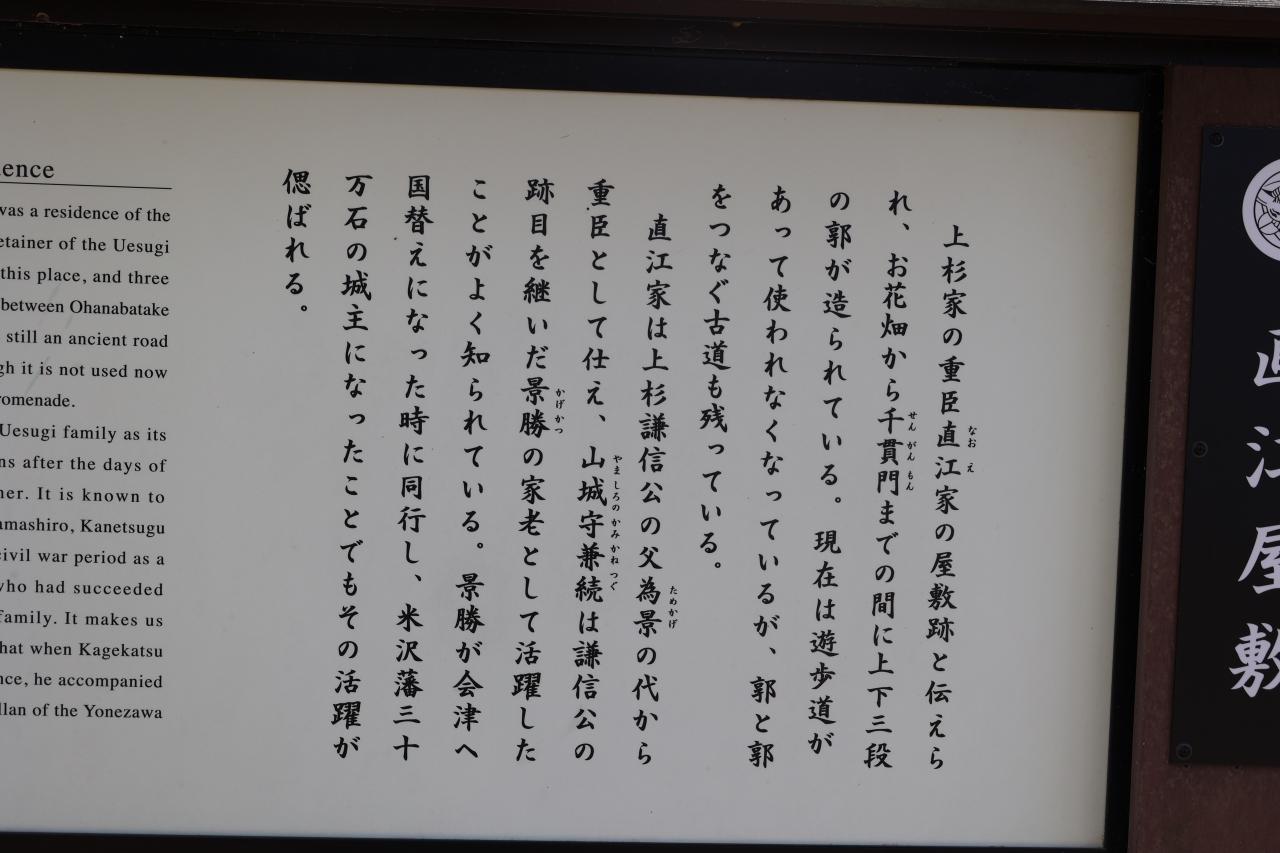 直江屋敷
上杉家の重臣直江家の屋敷跡と伝えら
なおえ
れ、お花畑から千貫門までの間に上下三段
せんがんもん
の郭が造られている。現在は遊歩道が
あって使われなくなっているが、郭と郭
をつなぐ古道も残っている。
直江家は上杉謙信公の父為景の代から
ためかげ
重臣として仕え、山城守兼続は謙信公の
やましろのかみかねつぐ
跡目を継いだ景勝の家老として活躍した
かげかつ
ことがよく知られている。景勝が会津へ
国替えになった時に同行し、米沢藩三十
万石の城主になったことでもその活躍が
偲ばれる。
ence
was a residence of the
etainer of the Uesugi
this place, and three
between Ohanabatake
still an ancient road
gh it is not used now
omenade.
Uesugi family as its
ns after the days of
her. It is known to
amashiro, Kanetsugu
civil war period as a
who had succeeded
family. It makes us
hat when Kagekatsu
nce, he accompanied
llan of the Yonezawa